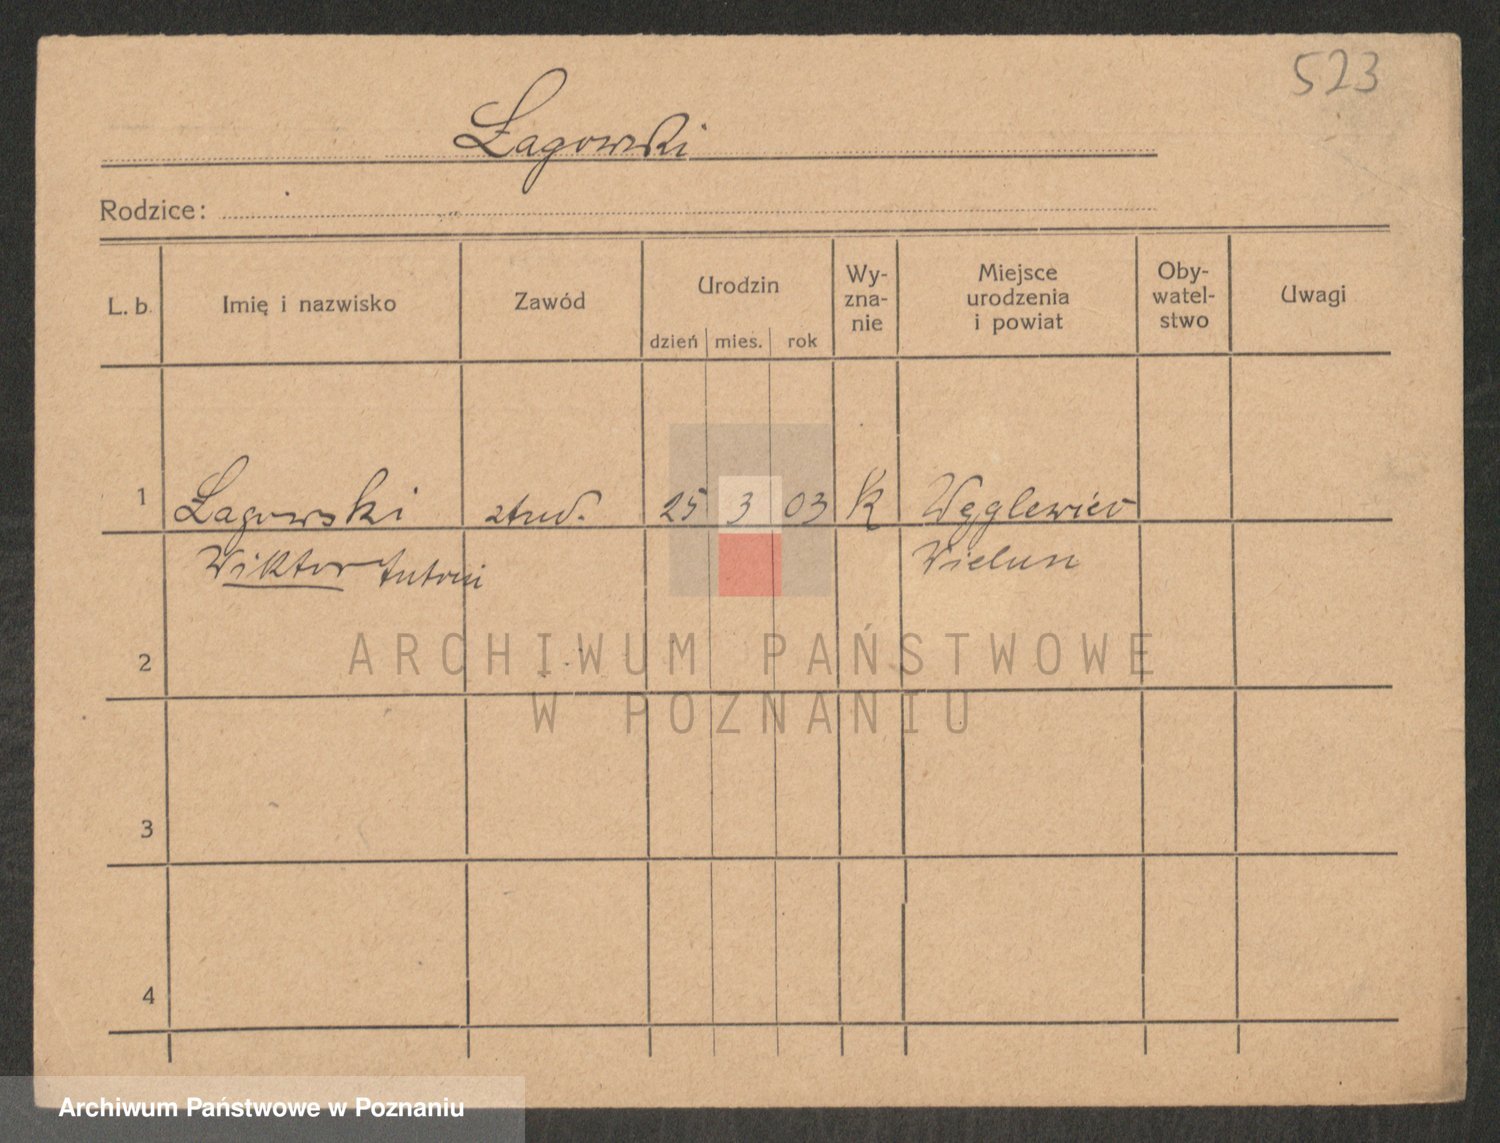 523
Łagowski
Rodzice:
L. b.
Imię i nazwisko
Zawód
Urodzin
dzień
mies.
rok
Wy-
zna-
nie
Miejsce
urodzenia
i powiat
Oby-
watel-
stwo
Uwagi
1
Łagowski
stud.
25
3
03
K
Węglewice
Wiktor Antoni
Wielun
2
ARCHIWUM PAŃSTWOWE
W POZNANIU
3
4
Archiwum Państwowe w Poznaniu